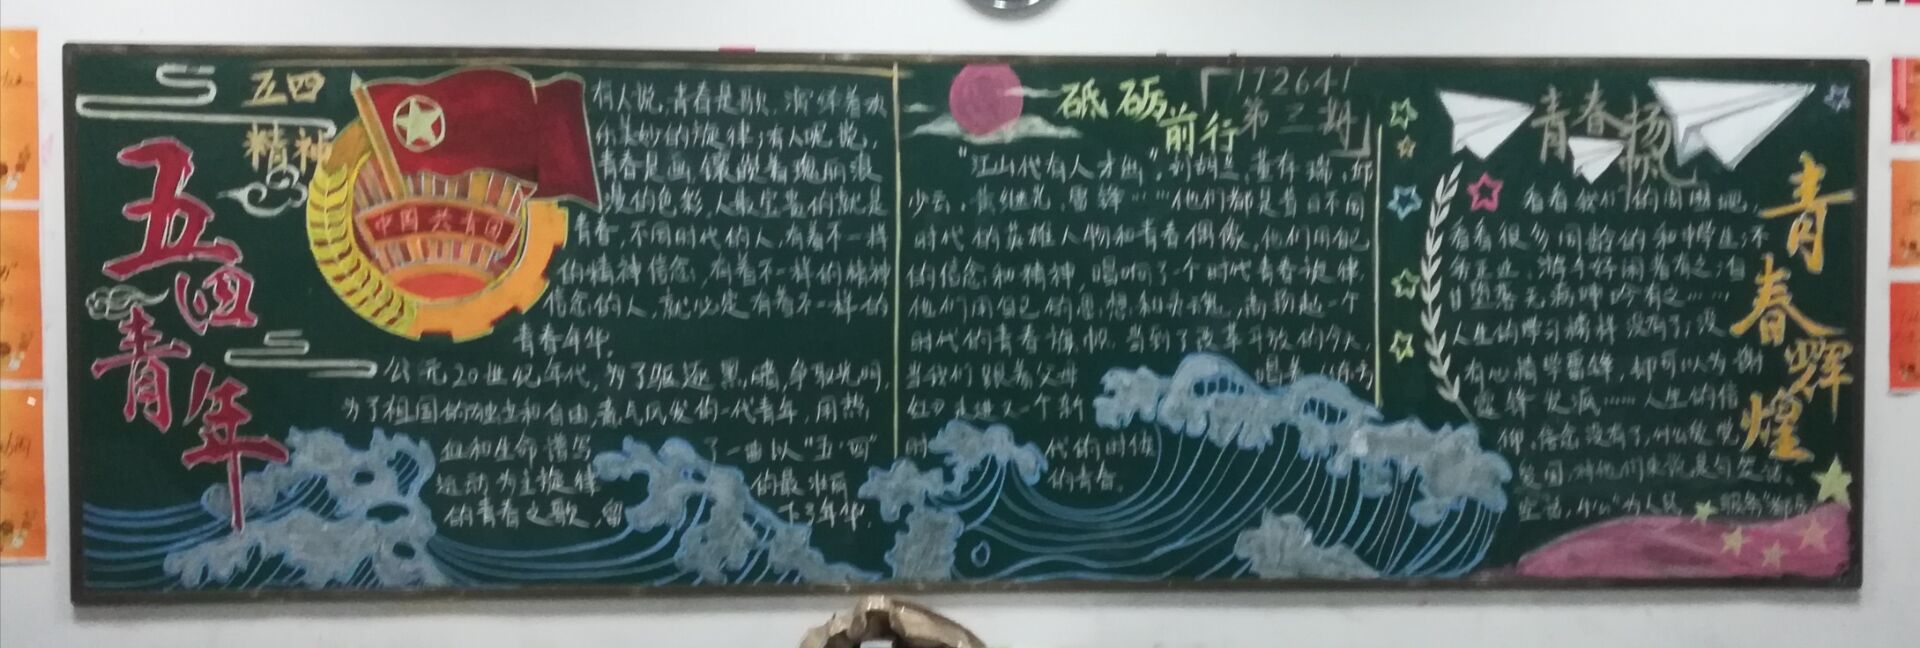 五四
精神
五四
青年
中国共青团
有人说,青春是歌,演绎着欢
乐美妙的旋律;有人呢说,
青春是画,镶嵌着瑰丽浪
漫的色彩,人最宝贵的就是
青春,不同时代的人,有着不一样
的精神信念,有着不一样的精神
信念的人,就必定有着不一样的
青春年华。
公元20世纪年代,为了驱逐黑暗,争取光明,
为了祖国的独立和自由,意气风发的一代青年,用热
血和生命谱写了一曲以"五·四"
运动为主旋律的最
的青春之歌,留下了年华.
砥砺
前行
「172641
第二期」
"江山代有人才出",刘胡兰,董存瑞,邱
少云,黄继光,雷锋……他们都是青日不同
时代的英雄人物和青春偶像,他们用自己
的信念和精神,唱响了一个时代青春旋律,
他们用自己的思想和灵魂,高扬起一个
时代的青春旗帜.当到了改革开放的今天,
当我们跟着父母唱着《东方
红》走进又一个新
时代的时候
的青春。
青春扬
帆
看看我们的周围吧,
看看很多同龄的
有之
无病呻吟有之……
人生的学习榜样没有了,没
有心情学雷锋,却可以为谢
霆锋发疯……人生的信
仰,信念没有了,什么
爱国,对他们来说是句空话。
空话,什么"为人民服务"都
青
春
辉
煌